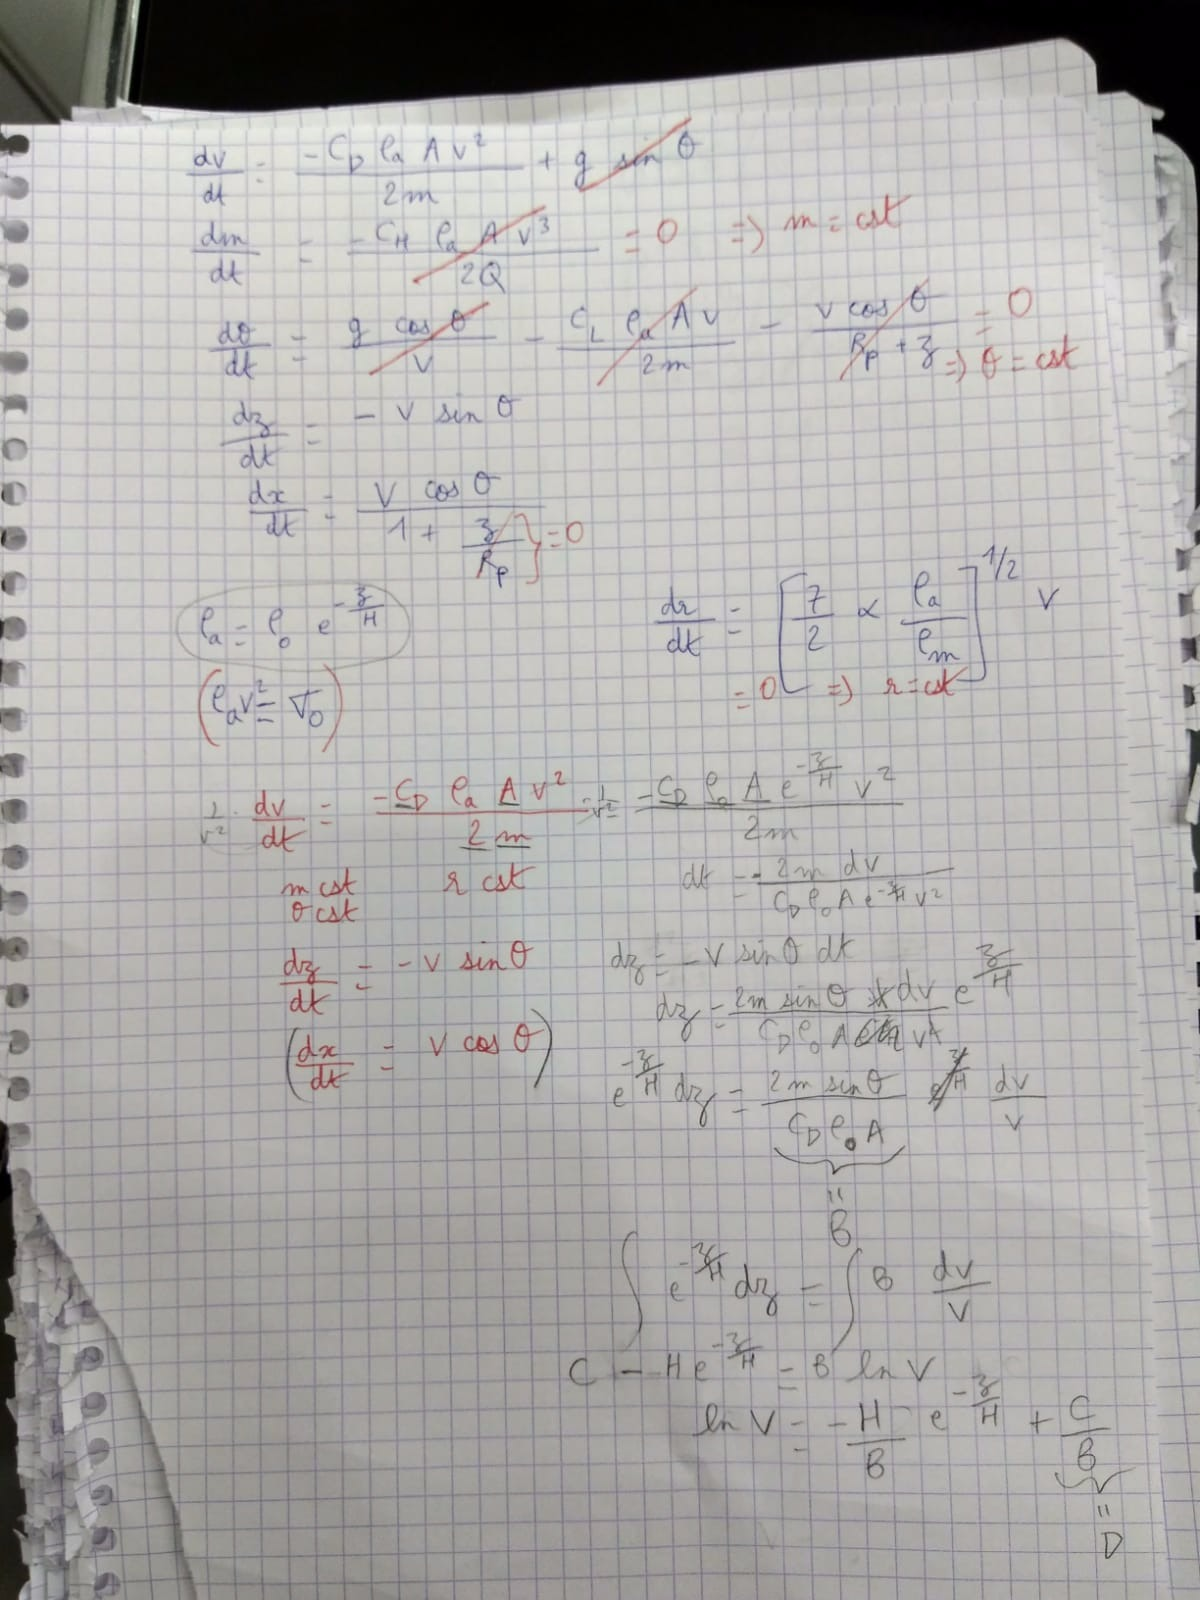 dv/dt = -C_D ρ_a A v²/2m + g sin θ
dm/dt = -C_H ρ_a A v³/2Q = 0 ⇒ m = cst
dθ/dt = g cos θ/v - C_L ρ_a A v/2m - v cos θ/(R_p + z) = 0 ⇒ θ = cst
dz/dt = - v sin θ
dx/dt = v cos θ/(1 + z/R_p) } = 0
ρ_a = ρ_0 e^(-z/H)
dr/dt = [7/2 α ρ_a/ρ_m]^(1/2) v
= 0 ⇒ r = cst
(ρ_a v² = σ_0)
1/v² · dv/dt = -C_D ρ_a A v²/2m = 1/v² -C_D ρ_a A e^(-z/H) v²/2m
m cst r cst
θ cst
dt = - 2m dv/(C_D ρ_0 A e^(-z/H) v²)
dz/dt = - v sin θ
dz = - v sin θ dt
(dx/dt = v cos θ)
dz = 2m sin θ dv/(C_D ρ_0 A v) e^(z/H)
e^(-z/H) dz = 2m sin θ/(C_D ρ_0 A) dv/v
= B
∫ e^(-z/H) dz = ∫ B dv/v
C - H e^(-z/H) = B ln v
ln v = - H/B e^(-z/H) + C/B
= D